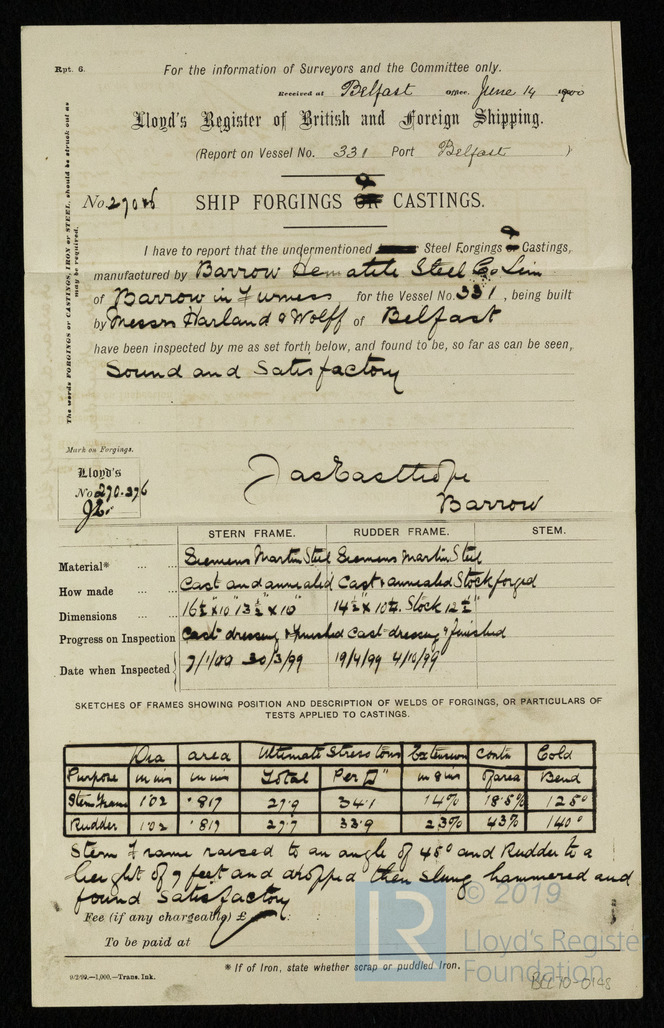 Rpt. 6.
For the information of Surveyors and the Committee only.
Received at Belfast Office, June 14 1900
Lloyd's Register of British and Foreign Shipping.
(Report on Vessel No. 331 Port Belfast )
The words FORGINGS or CASTINGS, IRON or STEEL, should be struck out as
may be required.
No.
SHIP FORGINGS & CASTINGS.
I have to report that the undermentioned Steel Forgings & Castings,
manufactured by Barrow Hematite Steel Co Lim
of Barrow in Furness, for the Vessel No. 331, being built
by Messrs Harland & Wolff of Belfast
have been inspected by me as set forth below, and found to be, so far as can be seen,
Sound and Satisfactory
Mark on Forgings.
Lloyd's
No 270.376
Jas Easthope
Barrow
STERN FRAME. RUDDER FRAME. STEM.
Material* ... ... Siemens Martin Steel Siemens Martin Steel
How made ... ... Cast and annealed Cast & annealed Stock forged
Dimensions ... ... 16½"x10" 13½"x10" 14½"x10½. Stock 12½"
Progress on Inspection Cast dressing & finished Cast dressing & finished
Date when Inspected 30/3/99 19/4/99 4/10/99
SKETCHES OF FRAMES SHOWING POSITION AND DESCRIPTION OF WELDS OF FORGINGS, OR PARTICULARS OF
TESTS APPLIED TO CASTINGS.
Dia area Ultimate Stress tons Extension Contn Cold
Purpose in ins in ins Total Per □" in 8 ins of area Bend
Stern Frame 1.02 .817 27.9 34.1 14% 18.5% 125°
Rudder 1.02 .817 27.7 33.9 23% 43% 140°
Stern Frame raised to an angle of 45° and Rudder to a
height of 9 feet and dropped then slung hammered and
found Satisfactory
Fee (if any chargeable) £ : :
To be paid at
* If of Iron, state whether scrap or puddled Iron.
9/2/99.—1,000.—Trans. Ink.
© 2019
LR
Lloyd's Register
Foundation
BEL70-0148